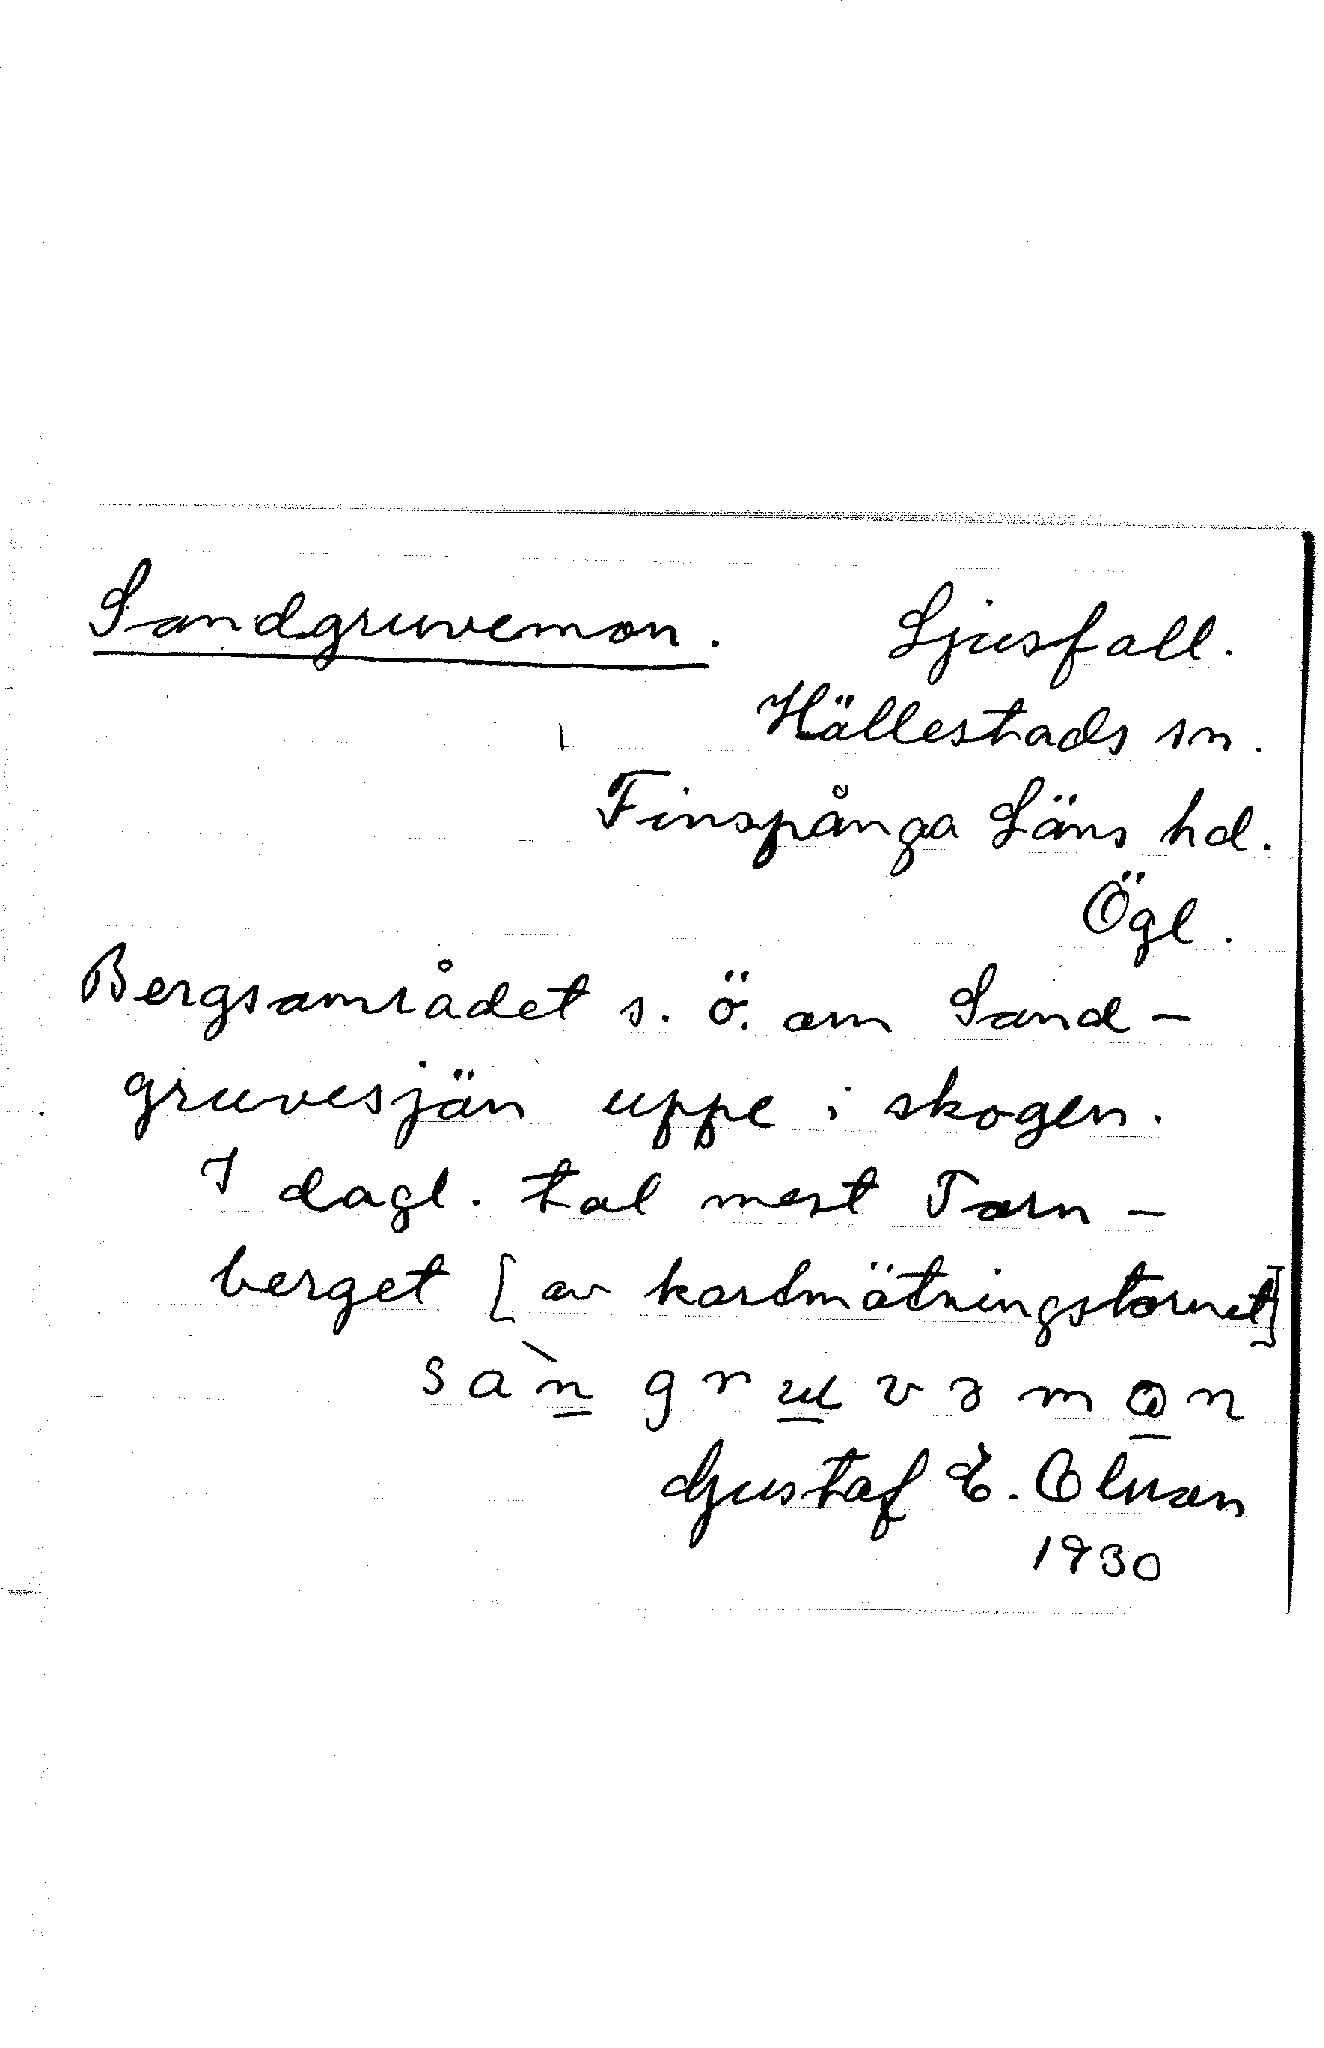 Sandgruvemon. Ljusfall.
Hällestads sn.
Finspånga Läns hd.
Ögl.
Bergsområdet s. ö. om Sand-
gruvesjön uppe i skogen.
I dagl. tal mest Torn-
berget [av kartmätningstornet]
sàn gruvəmon
Gustaf E. Olsson
1930